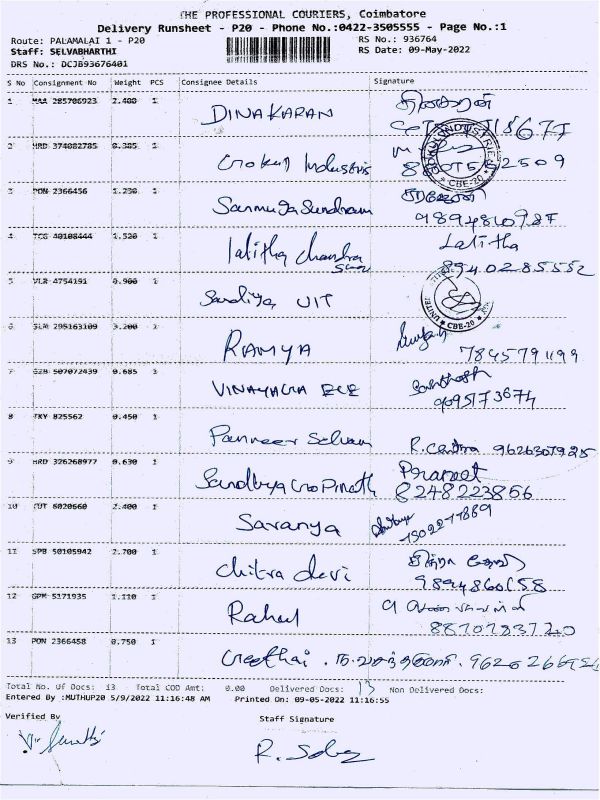 THE PROFESSIONAL COURIERS, Coimbatore
Delivery Runsheet - P20 - Phone No.:0422-3505555 - Page No.:1
Route: PALAMALAI 1 - P20 RS No.: 936764
Staff: SELVABHARTHI RS Date: 09-May-2022
DRS No.: DCJB93676401
S No Consignment No Weight PCS Consignee Details Signature
1 MAA 285706923 2.400 1 DINAKARAN தினகரன்
2 HRD 374082785 0.385 1 Gokul Industries
GOKUL INDUSTRIES * CBE-20 *
3 PON 2366456 1.290 1 Sanmuga Sundram
9894840987
4 TCG 40108444 1.520 1 Lalitha Chandra Lalitha
8940285552
5 VLR 4754191 0.900 1 Sandiya UIT
* CBE-20 *
6 SLM 295163109 3.200 1 RAMYA
7845791199
7 507072439 0.685 1 VINAYAGA ECE Santhosh
9095173674
8 TRY 825562 0.450 1 Panneer Selvam R. 9626307925
9 HRD 326268977 0.630 1 Sandhya Gopinath Praneet
8248223866
10 TUT 6020660 2.400 1 Saranya
11 SPB 50105942 2.700 1 Chitra devi சித்ரா தேவி
12 GPM 5171935 1.110 1 Rahul
8870783720
13 PON 2366458 0.750 1 Geethai .
Total No. Of Docs: 13 Total COD Amt: 0.00 Delivered Docs: 13 Non Delivered Docs:
Entered By :MUTHUP20 5/9/2022 11:16:48 AM Printed On: 09-05-2022 11:16:55
Verified By Staff Signature